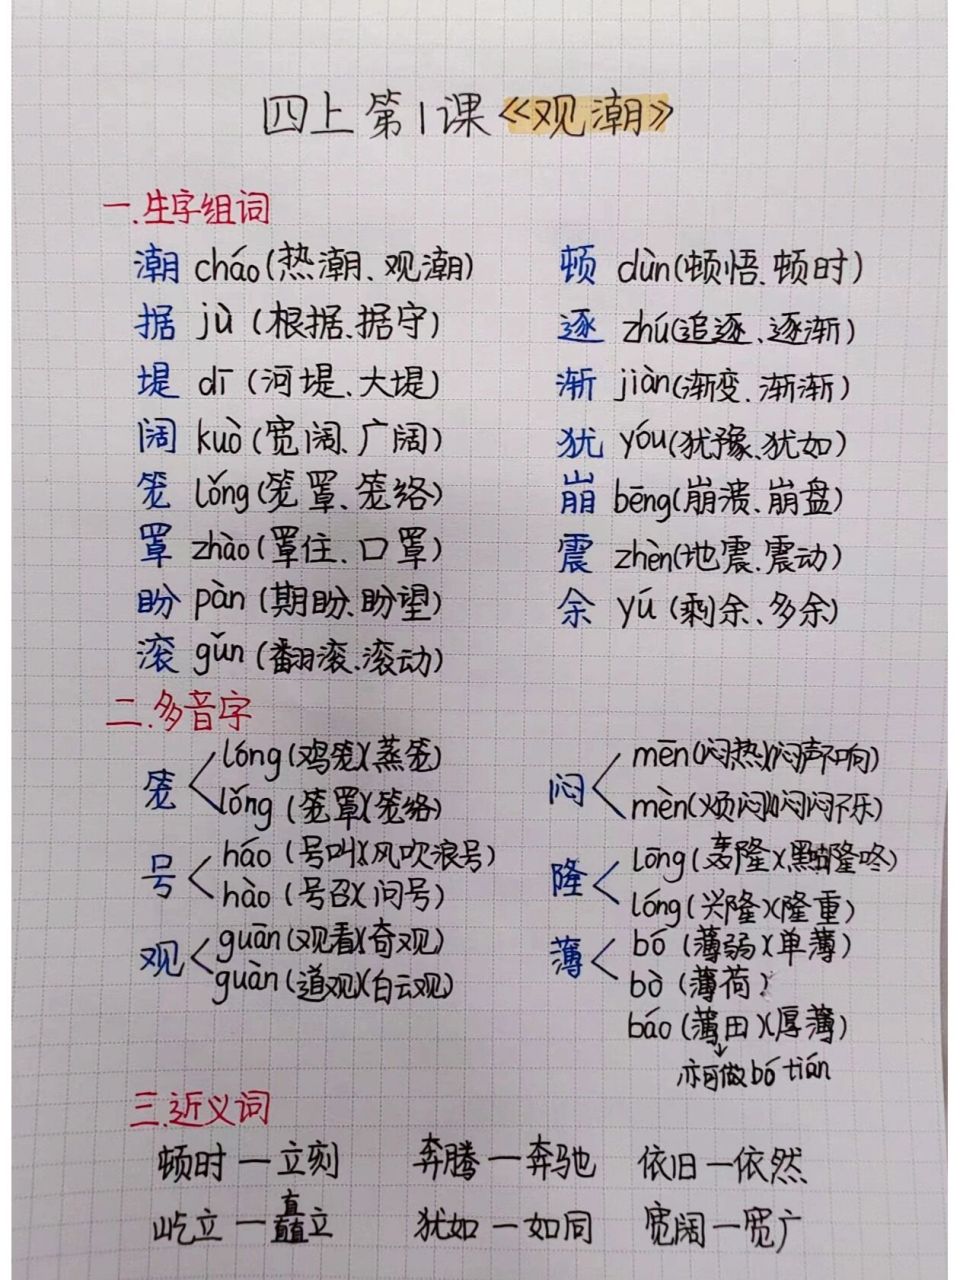 四上第1课《观潮》
一.生字组词
潮 cháo(热潮、观潮) 顿 dùn(顿悟、顿时)
据 jù (根据、据守) 逐 zhú(追逐、逐渐)
堤 dī (河堤、大堤) 渐 jiàn(渐变、渐渐)
阔 kuò (宽阔、广阔) 犹 yóu(犹豫、犹如)
笼 lǒng(笼罩、笼络) 崩 bēng(崩溃、崩盘)
罩 zhào(罩住、口罩) 震 zhèn(地震、震动)
盼 pàn (期盼、盼望) 余 yú (剩余、多余)
滚 gǔn (翻滚、滚动)
二.多音字
笼 lóng(鸡笼)(蒸笼) 闷 mēn(闷热)(闷声不响)
lǒng (笼罩)(笼络) mèn(烦闷)(闷闷不乐)
号 háo (号叫)(风吹浪号) 隆 lōng(轰隆)(黑咕隆咚)
hào (号召)(问号) lóng(兴隆)(隆重)
观 guān(观看)(奇观) 薄 bó (薄弱)(单薄)
guàn (道观)(白云观) bò (薄荷)
báo (薄田)(厚薄)
亦可做bó tián
三.近义词
顿时一立刻 奔腾一奔驰 依旧一依然
屹立一矗立 犹如一如同 宽阔一宽广